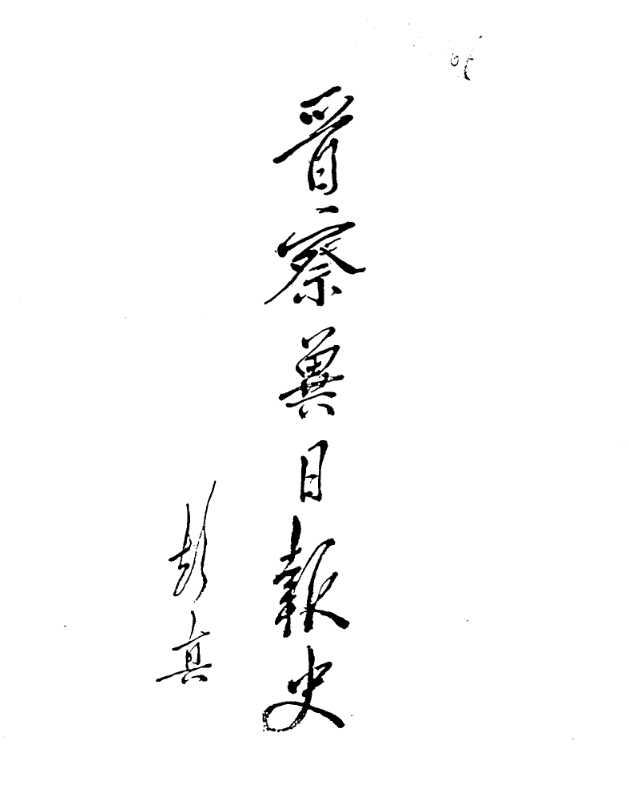 晋察冀日報史
彭真